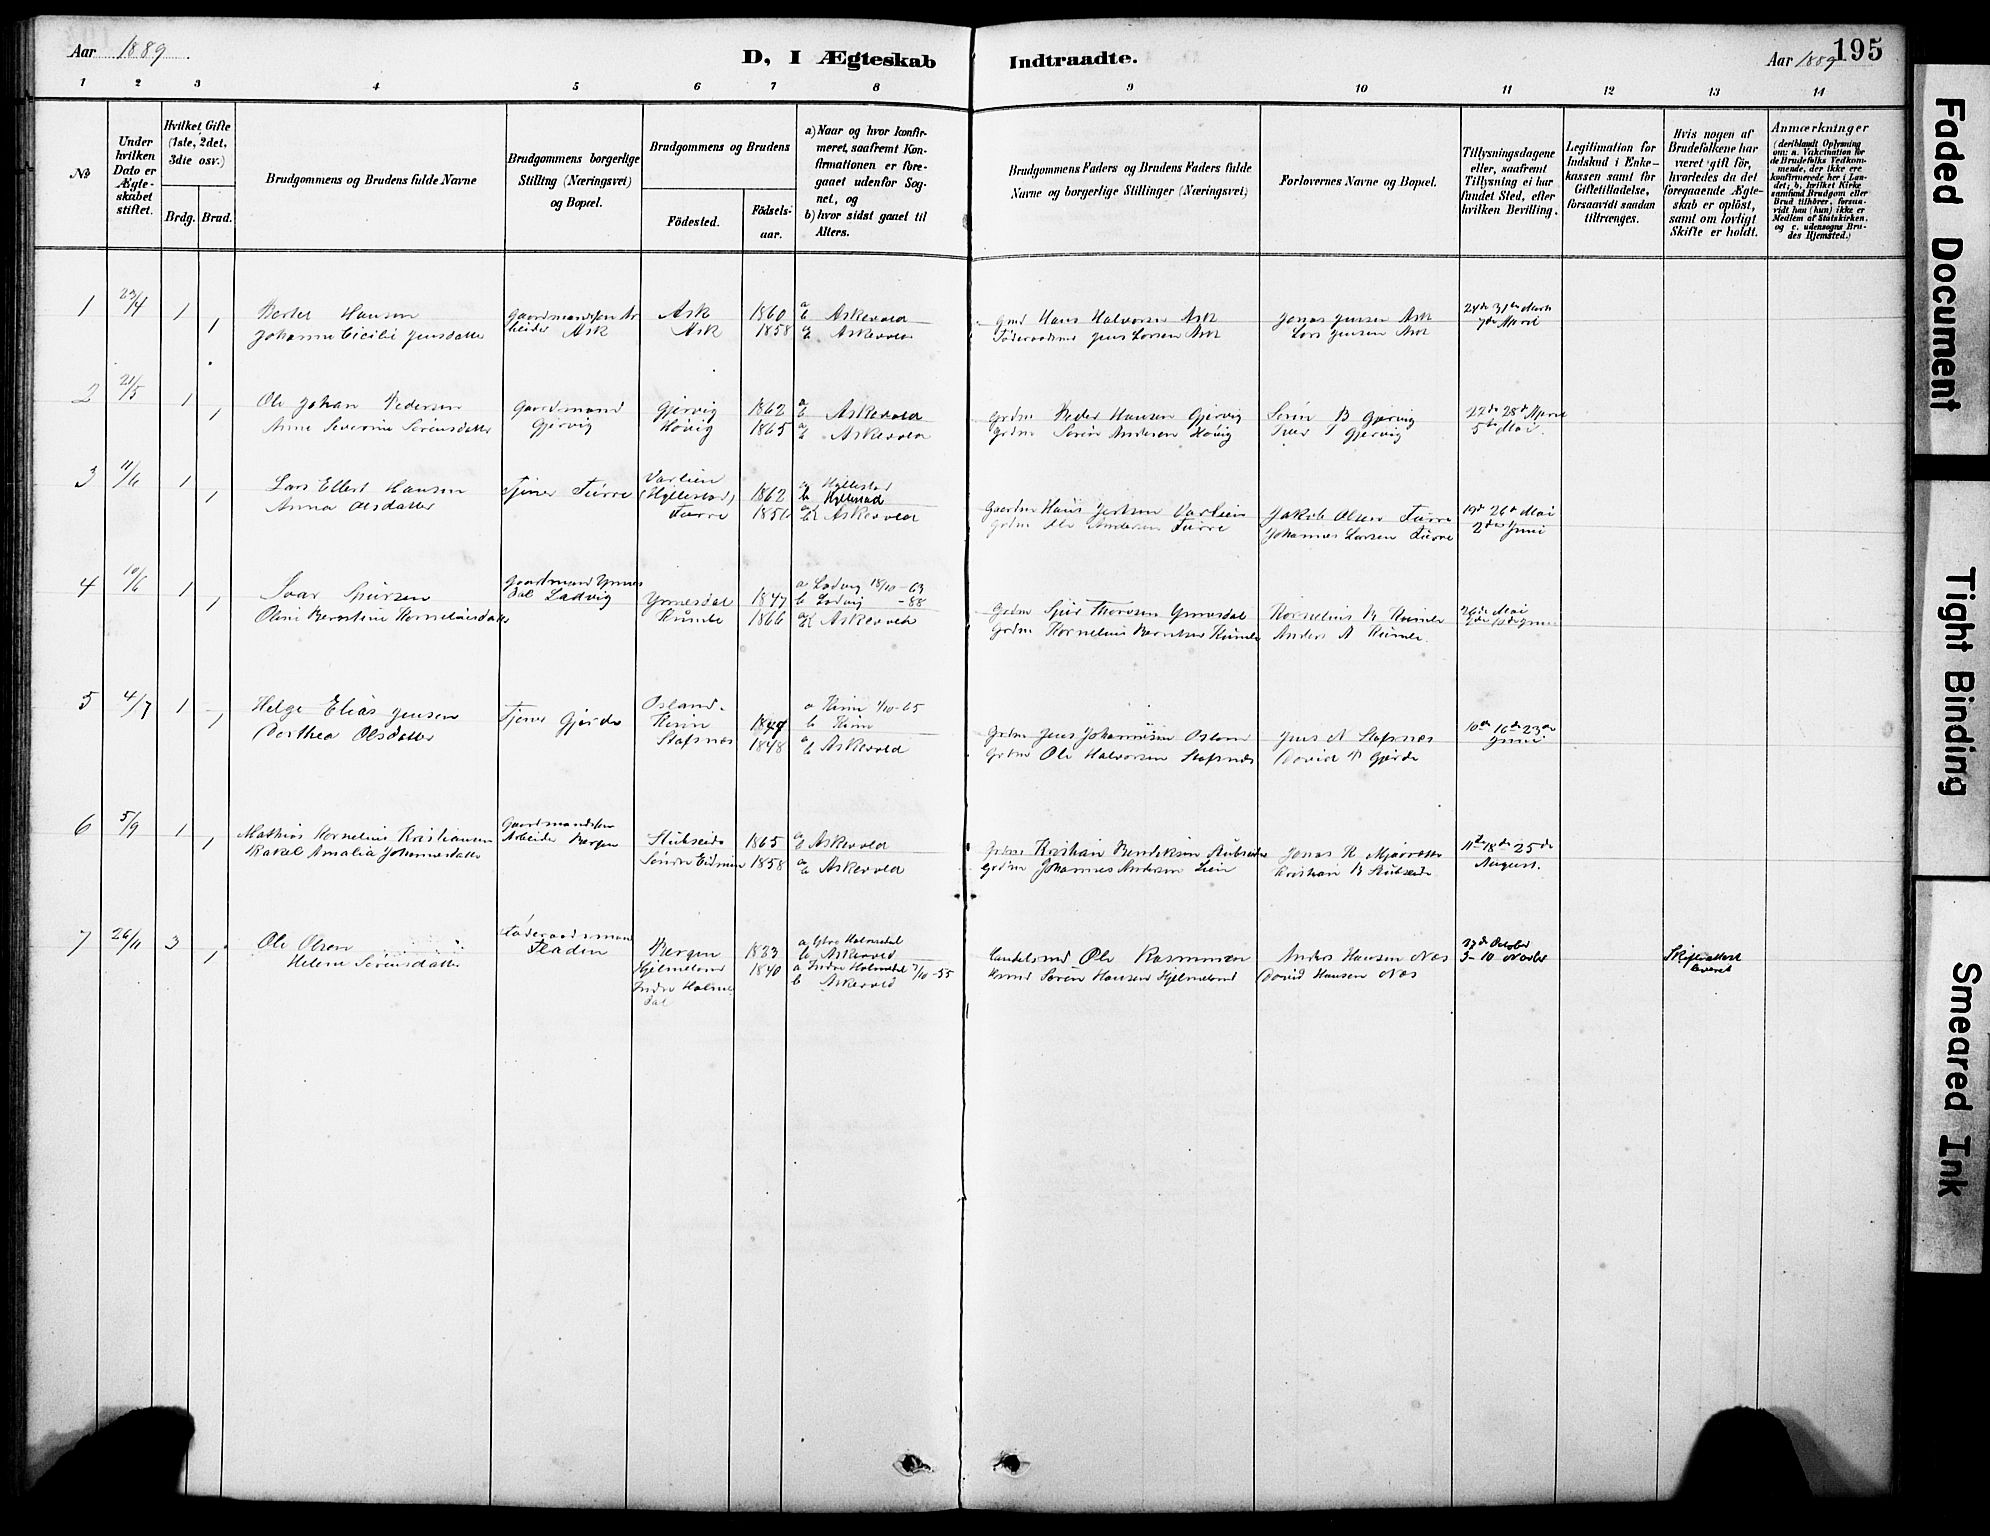 Aar 1889.
D, I Ægteskab Indtraadte.
Aar 1889
195
1 2 3 4 5 6 7 8 9 10 11 12 13 14
No
Under hvilken Dato er Ægteskabet stiftet.
Hvilket Gifte (1ste, 2det, 3die osv.)
Brdg. Brud.
Brudgommens og Brudens fulde Navne
Brudgommens borgerlige Stilling (Næringsvei) og Bopæl.
Brudgommens og Brudens
Födested.
Födselsaar.
a) Naar og hvor konfirmeret, saafremt Konfirmationen er foregaaet udenfor Sognet, og
b) hvor sidst gaaet til Alters.
Brudgommens Faders og Brudens Faders fulde Navne og borgerlige Stillinger (Næringsvei)
Forlovernes Navne og Bopæl.
Tillysningsdagene eller, saafremt Tillysning ei har fundet Sted, efter hvilken Bevilling.
Legitimation for Indskud i Enkekassen samt for Giftetilladelse, forsaavidt saadan tiltrænges.
Hvis nogen af Brudefolkene har været gift för, hvorledes da det foregaaende Ægteskab er oplöst, samt om lovligt Skifte er holdt.
Anmærkninger (deriblandt Oplysning om: a. Vakcination for de Brudefolks Vedkommende, der ikke ere konfirmerede her i Landet; b. hvilket Kirkesamfund Brudgom eller Brud tilhörer, forsaavidt han (hun) ikke er Medlem af Statskirken. og c. udensogns Brudes Hjemsted.)
1 23/4 1 1
Bertel Hansen
Johanne Cicilie Jensdatter
Gaardmandssøn Arbeider Ask
Ask 1860 a b Askevold
Ask 1858 a b Askevold
Gmd Hans Halvorsen Ask
Föderaadsmd Jens Larsen Ask
Jonas Jensen Ask
Lars Jensen Ask
24de 31te Marts
7de April
2 21/5 1 1
Ole Johan Pedersen
Anne Severine Sörensdatter
Gaardmand Gjervig
Gjervig 1862 a b Askevold
Hövig 1865 a b Askevold
Grdm Peder Hansen Gjervig
Grdm Sörin Andersen Hövig
Sörin B Gjervig
Iver P Gjervig
22de 28de April
5te Mai
3 11/6 1 1
Lars Ellert Hansen
Anna Olsdatter
Tjener Furre
Varlien (Hyllestad) 1862 a Hyllestad b Hyllestad
Furre 185 a b Askevold
Gaardm Hans Varlien
Grdm Ole Andersen Furre
Jakob Olsen Furre
Johannes Larsen Furre
19de 26de Mai
2den Juni
4 10/6 1 1
Ivar Sjursen
Oline Berntine Korneliusdatter
Gaardmand Ynnesdal Ladvig
Ynnesdal 1847 a Ladvig 18/10-63 b Ladvig -88
Rumle 1866 a b Askevold
Grdm Sjur Thoresen Ynnesdal
Grdm Kornelius Berntsen Rumle
Kornelius B Rumle
Anders A Rumle.
26de Mai
5 4/7 1 1
Helge Elias Jensen
Dorthea Olsdatter
Tjener Gjörde
Osland. Kinn a Kinn 1/10-65 b Kinn
Stafsnæs 1848 a b Askevold
Grdm Jens Johannesen Osland
Grdm Ole Halvorsen Stafsnæs
Jens A Stafsnæs
David P Gjörde
10de 16de 23de Juni
6 5/9 1 1
Mathias Kornelius Kristiansen
Rakel Amalia Johannesdatter
Gaardmandssøn Arbeider Bergen
Stubseide 1865 a b Askevold
Söndre Eidmin 1858 a b Askevold
Grdm Kristian Bendiksen Stubseide
Grdm Johannes Andersen Lien
Jonas R
Kristian B Stubseide
11te 18de 25de
August.
7 26/11 3 1
Ole Olsen
Helene Sörensdatter
Föderaadsmand Fladen
Bergen 1823 a Ytre Holmedal b Askevold
Hjelmeland Indre Holmedal 1840 a Indre Holmedal 7/10-55 b Askevold
Handelsmd Ole Rasmussen
Grmd Sörin Hansen Hjelmeland
Anders Hansen Næs
David Hansen Næs
27de October
3-10 Novbr
Skifteattest leveret
Faded Document
Tight Binding
Smeared Ink